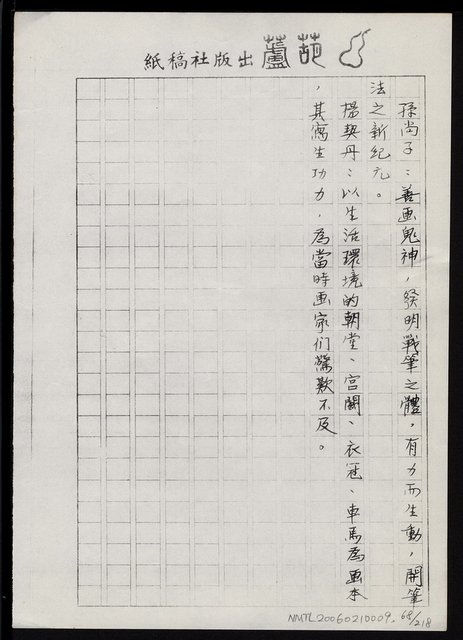 葫蘆出版社稿紙
孫尚子：善画鬼神，發明戰筆之體，有力而生動，開筆
法之新紀元。
楊契丹：以生活環境的朝堂、宮闕、衣冠、車馬為画本
，其寫生功力，為當時画家们驚歎不及。
NMTL20060210009. 68/218